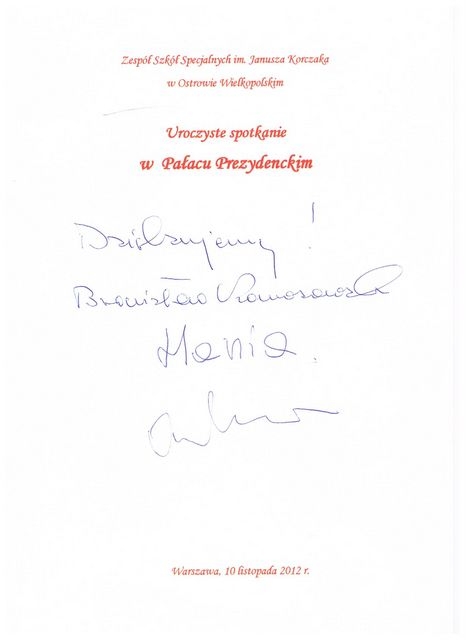 Zespół Szkół Specjalnych im. Janusza Korczaka
w Ostrowie Wielkopolskim
Uroczyste spotkanie
w Pałacu Prezydenckim
Dziękujemy !
Bronisław Komorowski
Hania.
Warszawa, 10 listopada 2012 r.